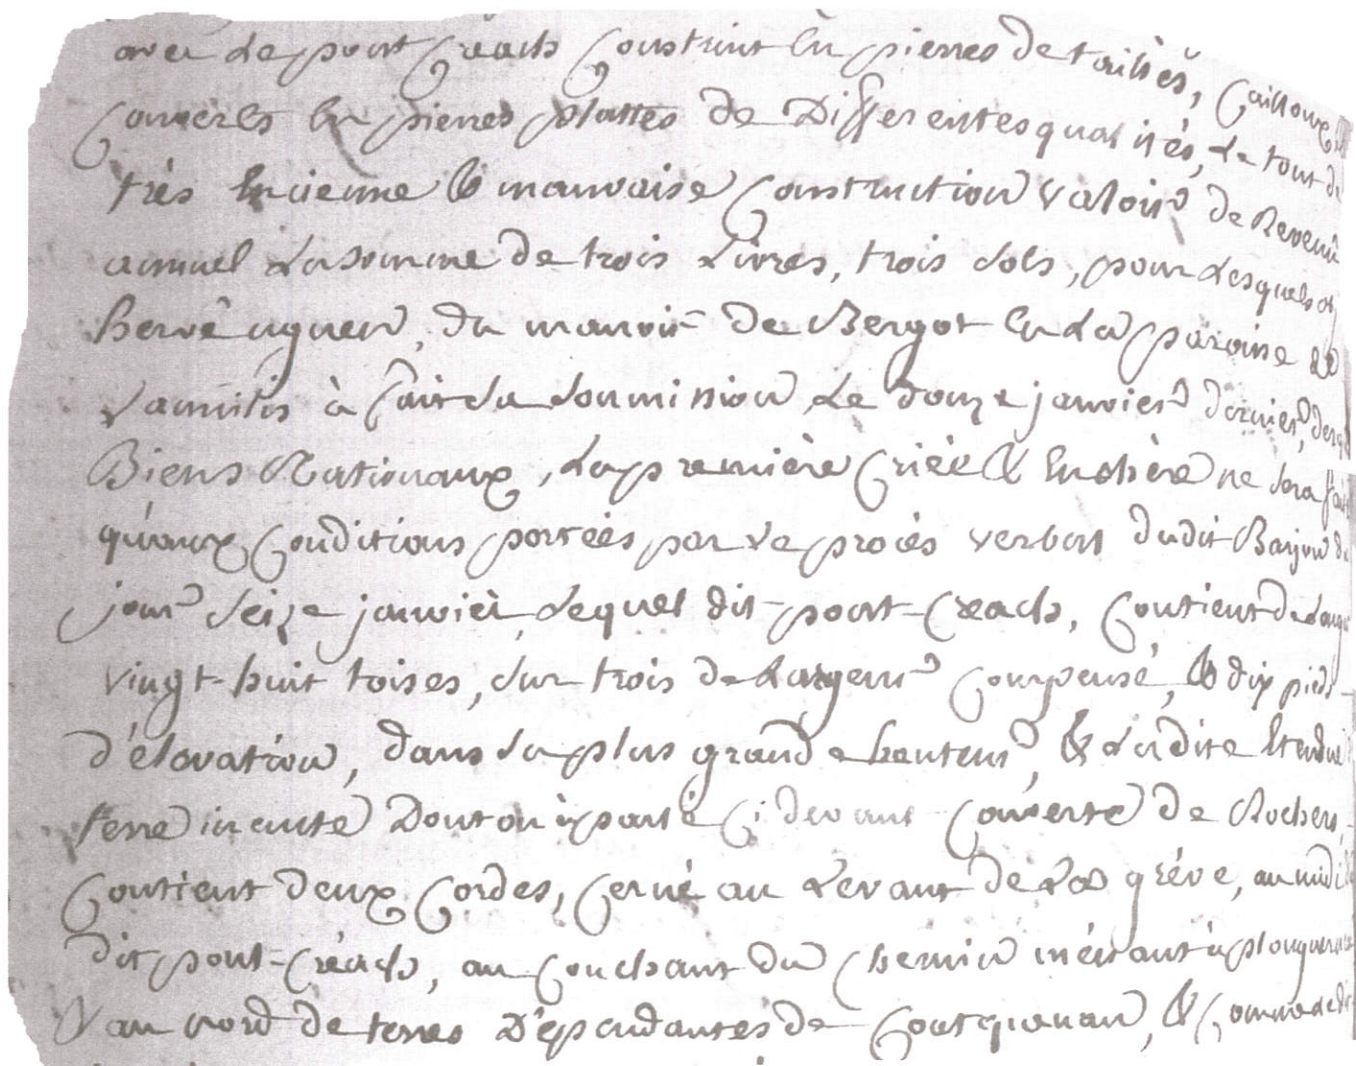 avec le pont Creach Construit En pierres de tailles, Cailloux
Couverts En pierres plattes de Differentes qualités, le tout de
très Encienne & mauvaise Construction valoir de Revenu
annuel la somme de trois Livres, trois sols, pour lesquels
hervé uguen, du manoir de Bergot En La paroisse de
à fait sa soumission Le douze janvier dernier,
Biens Nationaux, la première Criée & Enchère ne sera
qu'aux Conditions portées par le procès verbal dudit
jour seize janvier, lequel dit pont-Creach, Contient de
vingt-huit toises, sur trois de Largeur Compensé, & dix pieds
d'élovation, dans la plus grande hauteur, & Ladite Etendue
terre inculte Dont on à parlé Ci devant Couverte de Rochers,
Contient deux Cordes, Cerné au Levant de La grève, au midi
dit pont-Créach, au Couchant du Chemin ménant à plouguerneau
& au nord de terres Dépendantes de Coatquenan, &